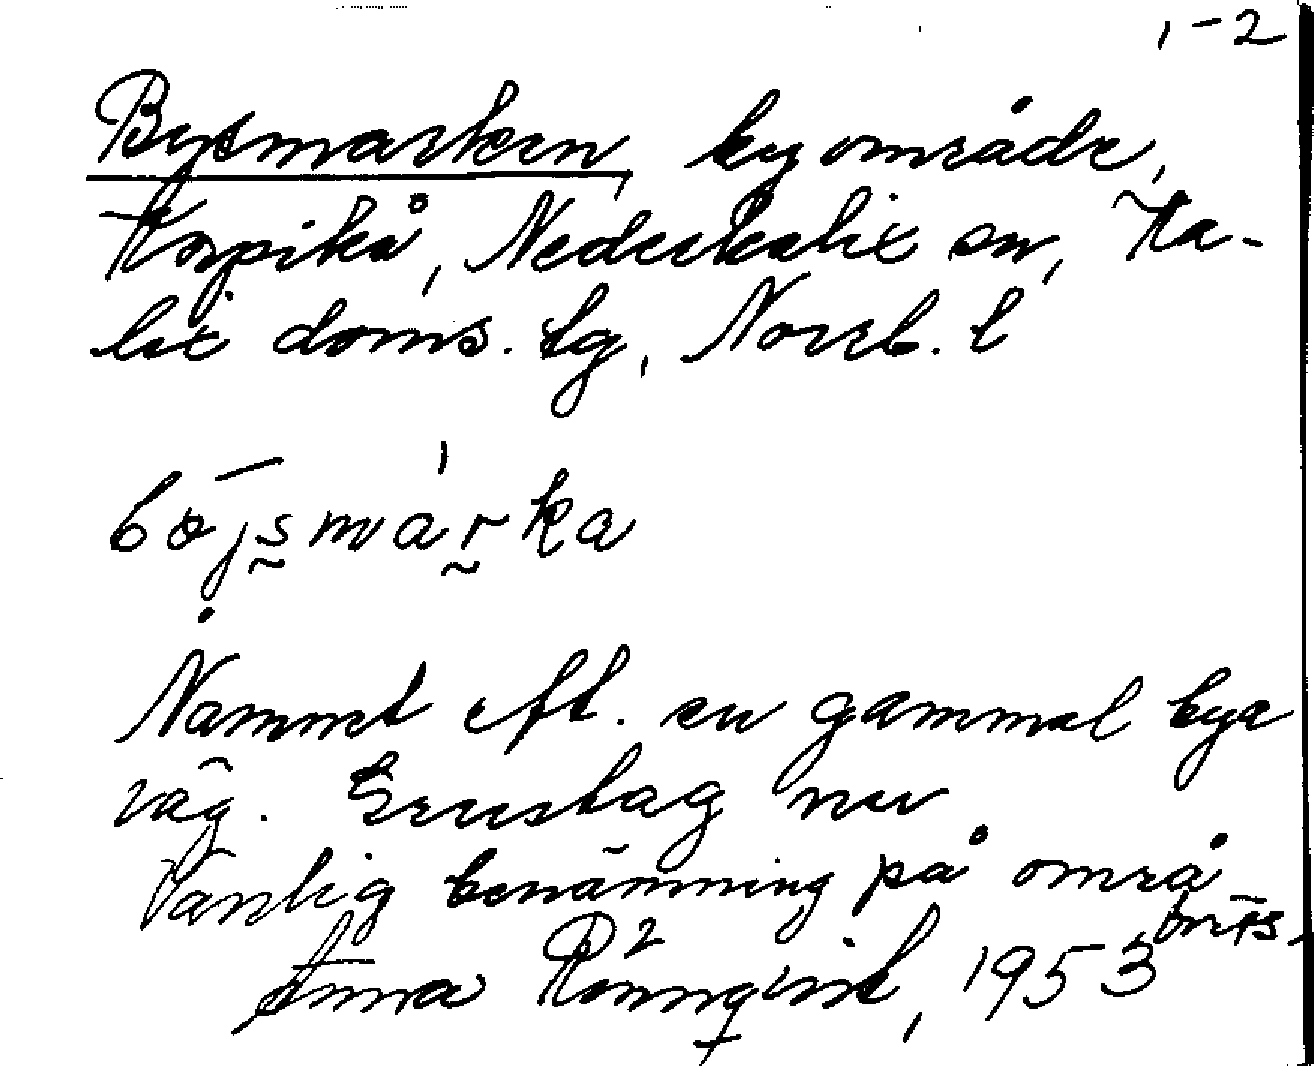 1-2
Bysmarken, byområde,
Korpikå, Nederkalix sn, Ka-
lix doms. tg, Norrb. l
Namnet eft. en gammal bya
väg. Grustag nu
Vanlig benämning på områ
Anna Rönnqvist, 1953